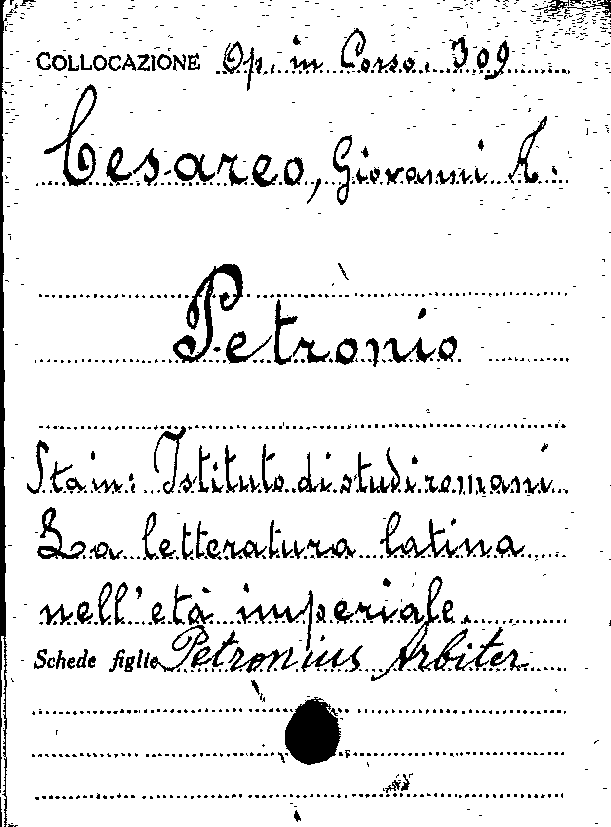 COLLOCAZIONE Op. in Corso. 309
Cesareo, Giovanni A.
Petronio
Sta in: Istituto di studi romani
La letteratura latina
nell'età imperiale.
Schede figlie Petronius Arbiter